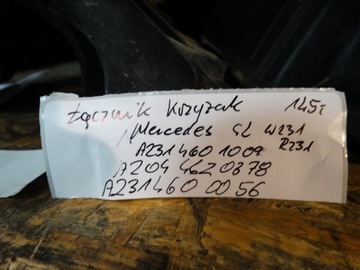 Łącznik Krzyżak 145z
Mercedes SL W231
A231 460 1009 R231
A204 462 0878
A231 460 00 56